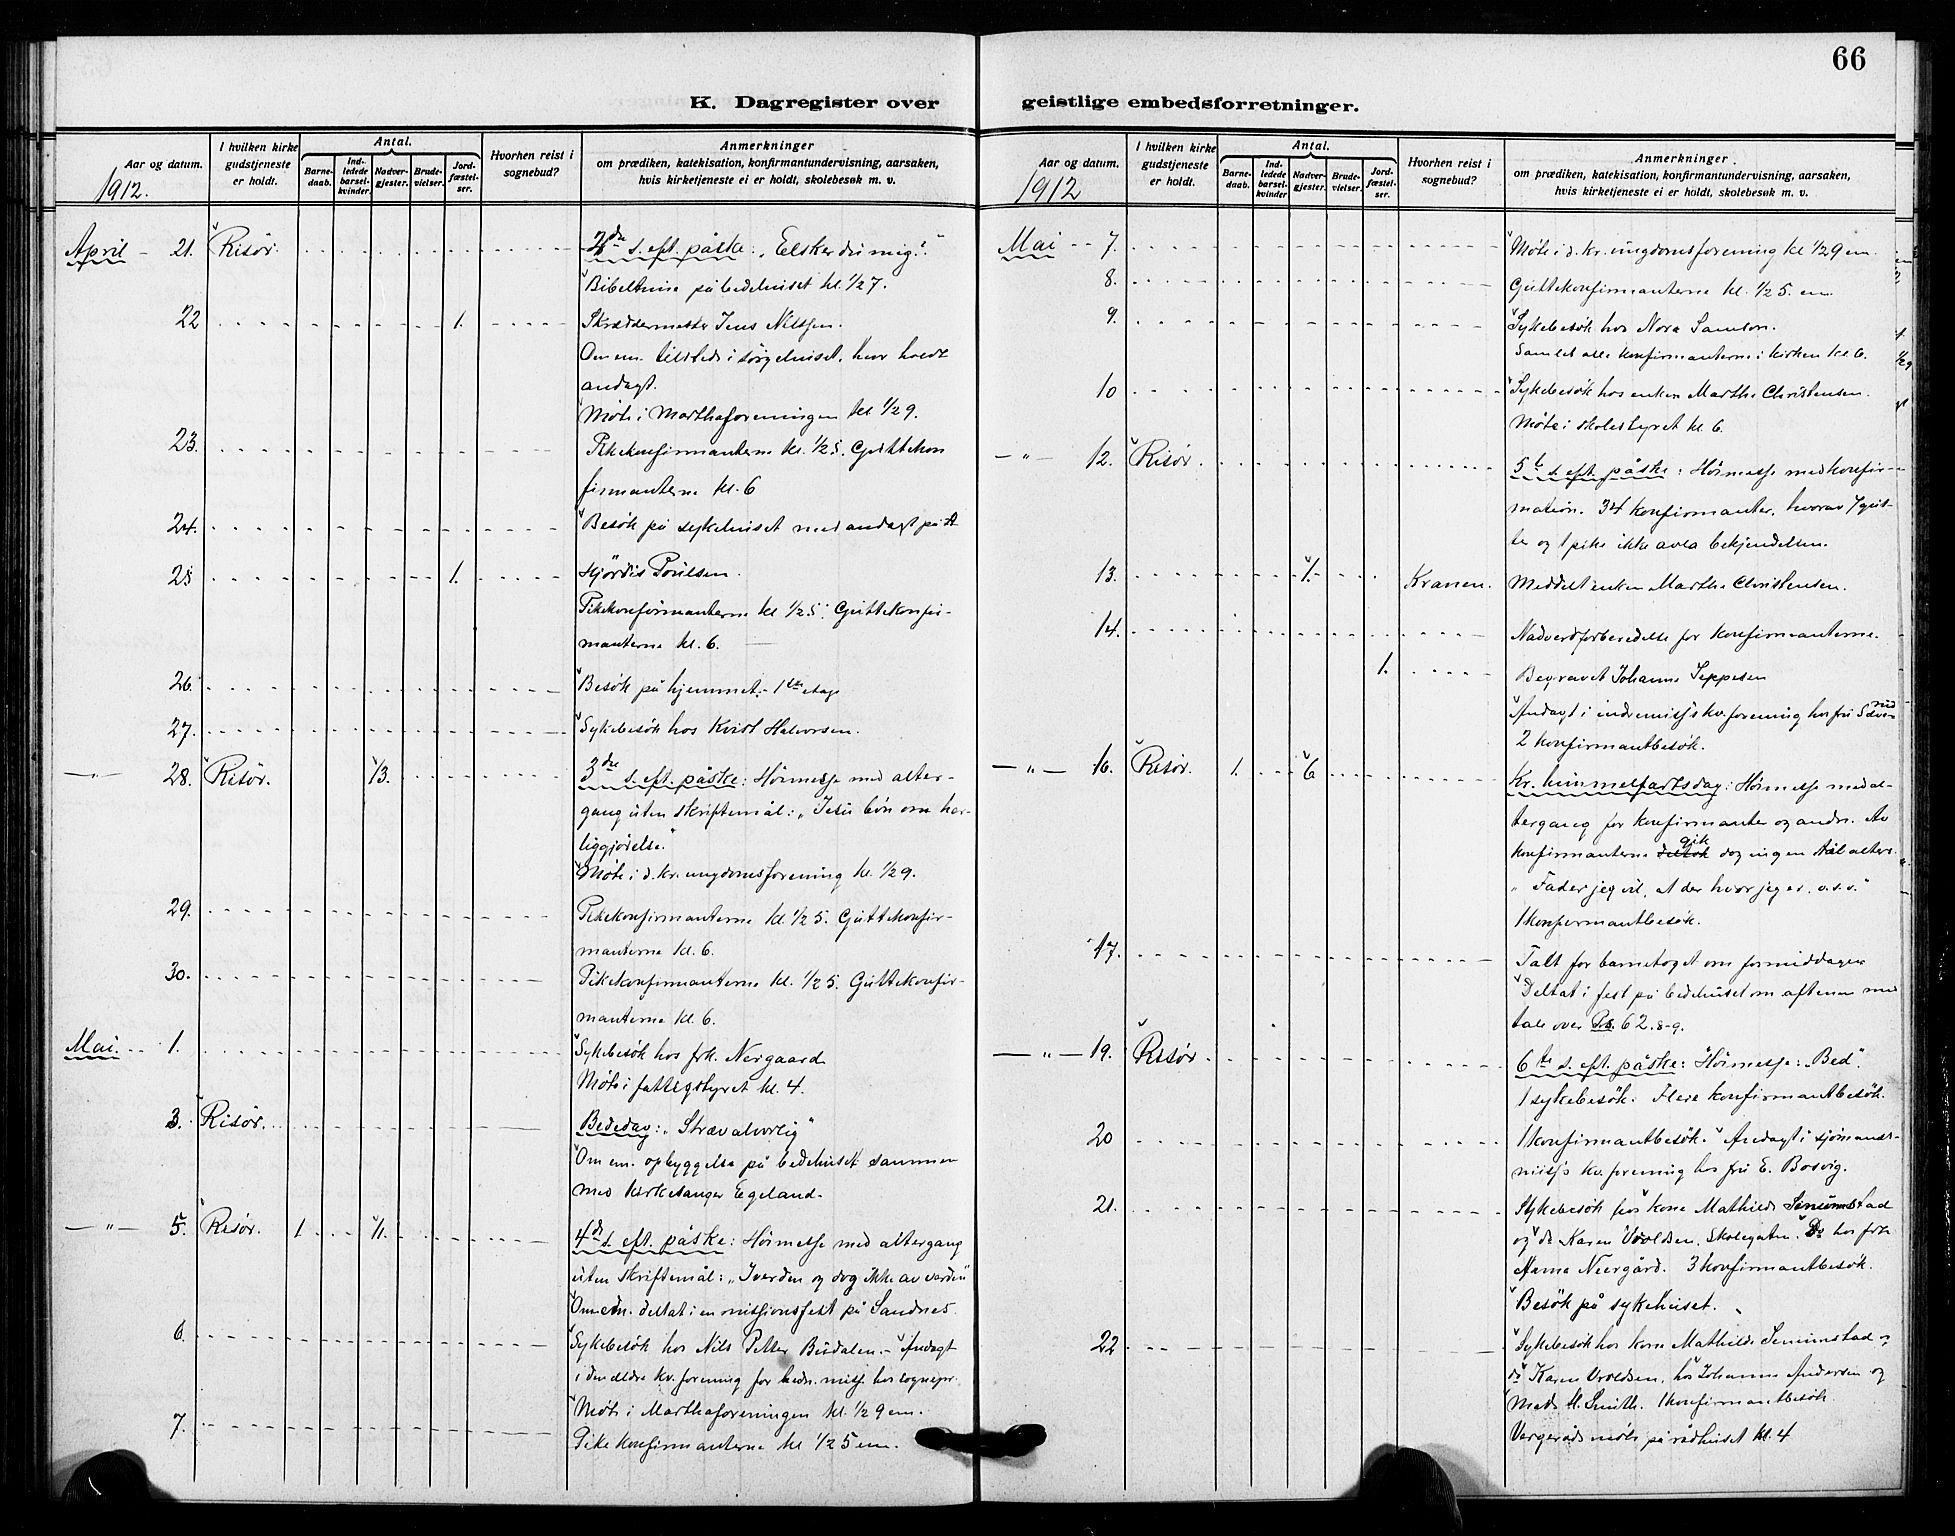 66
K. Dagregister over geistlige embedsforretninger.
Aar og datum.
I hvilken kirke gudstjeneste er holdt.
Antal.
Barne-daab.
Ind-ledede barsel-kvinder
Nadver-gjester.
Brude-vielser.
Jord-fæstel-ser.
Hvorhen reist i sognebud?
Anmerkninger
om prædiken, katekisation, konfirmantundervisning, aarsaken,
hvis kirketjeneste ei er holdt, skolebesøk m. v.
1912.
April - 21. Risør. 2den s. eft. påske: "Elsker du mig?"
Bibeltime på bedehuset kl. 1/2 7.
22 1. Skræddermester Jens Nilssen.
Om em. tilstede i sørgehuset, hvor holdt
andagt.
Møte i Marthaforeningen kl. 1/2 9.
23. Pikekonfirmanterne kl. 1/2 5. Guttekon
firmanterne kl. 6
24. Besøk på sykehuset med andagt på
25 1. Hjördis Poulsen.
Pikekonfirmanterne kl. 1/2 5. Guttekonfir-
manterne kl. 6.
26. Besøk på hjemmet. - 1ste etage
27. Sykebesøk hos Halvorsen.
-"- 28. Risør. 13. 3dre s. eft. påske: Høimesse med alter-
gang uten skriftemål: "Jesu bøn om her-
liggjørelse."
Møte i d. kr. ungdomsforening kl. 1/2 9.
29. Pikekonfirmanterne kl. 1/2 5. Guttekonfir-
manterne kl. 6.
30. Pikekonfirmanterne kl. 1/2 5. Guttekonfir-
manterne kl. 6.
Mai. 1. Sykebesøk hos frk. Nergaard
Møte i fattigstyret kl. 4.
3. Risør. Bededag: "Stræv alvorlig"
Om em. opbyggelse på bedehuset sammen
med kirkesanger Egeland.
-"- 5. Risør. 1 11. 4de s. eft. påske: Høimesse med altergang
uten skriftemål: "I verden og dog ikke av verden"
Om em. deltat i en missionsfest på Sandnes.
6. Sykebesøk hos Nils Petter Bisdalen. - Andagt
i den ældre kv. forening for hedn. miss. hos sognepr.
Møte i Marthaforeningen kl. 1/2 9 em.
7. Pikekonfirmanterne kl. 1/2 5 em.
Aar og datum.
I hvilken kirke gudstjeneste er holdt.
Antal.
Barne-daab.
Ind-ledede barsel-kvinder
Nadver-gjester.
Brude-vielser.
Jord-fæstel-ser.
Hvorhen reist i sognebud?
Anmerkninger
om prædiken, katekisation, konfirmantundervisning, aarsaken,
hvis kirketjeneste ei er holdt, skolebesøk m. v.
1912
Mai - 7. Møte i d. kr. ungdomsforening kl 1/2 9 em.
8. Guttekonfirmanterne kl. 1/2 5. em
9. Sykebesøk hos Nora Samson.
Samlet alle konfirmanterne i kirken kl 6.
10 Sykebesøk hos enken Marthe Christensen.
Møte i skolestyret kl. 6.
-"- 12. Risør. 5te s. eft. påske: Høimesse med konfir-
mation. 34 konfirmanter, hvorav 1 gut-
te og 1 pike ikke avla bekjendelsen.
13. 1. Kranen. Meddelt enken Marthe Christensen.
14. Nadverdforberedelse for konfirmanterne.
1. Begravet Johanne Jeppesen
Andagt i indremiss's kv. forening hos fru
2 konfirmantbesøk.
-"- 16. Risør. 1. 6 Kr. himmelfartsdag: Høimesse med al-
tergang for konfirmanter og andre. Av
konfirmanterne deltok gik dog ingen til alters.
"Fader jeg vil, at der hvor jeg er, o.s.v."
1 konfirmantbesøk.
17. Talt for barnetoget om formiddagen
Deltat i fest på bedehuset om aftenen med
tale over Ps. 62. 8-9.
-"- 19. Risør. 6te s. eft. påske: Høimesse: "Bed".
1 sykebesøk. Flere konfirmantbesøk.
20 1 konfirmantbesøk. Andagt i sjømands-
miss's kv. forening hos fru E. Bosvig.
21. Sykebesøk hos kone Mathilde
og do Karen Vroldsen, Skolegaten. Do hos frk
Anna Neergård. 3 konfirmantbesøk.
Besøk på sykehuset.
22 Sykebesøk hos kone Mathilde
do Karen Vroldsen, hos Johanne Andersen og
Mads H. Smith. 1 konfirmantbesøk.
Vergeråds møte på rådhuset kl. 4